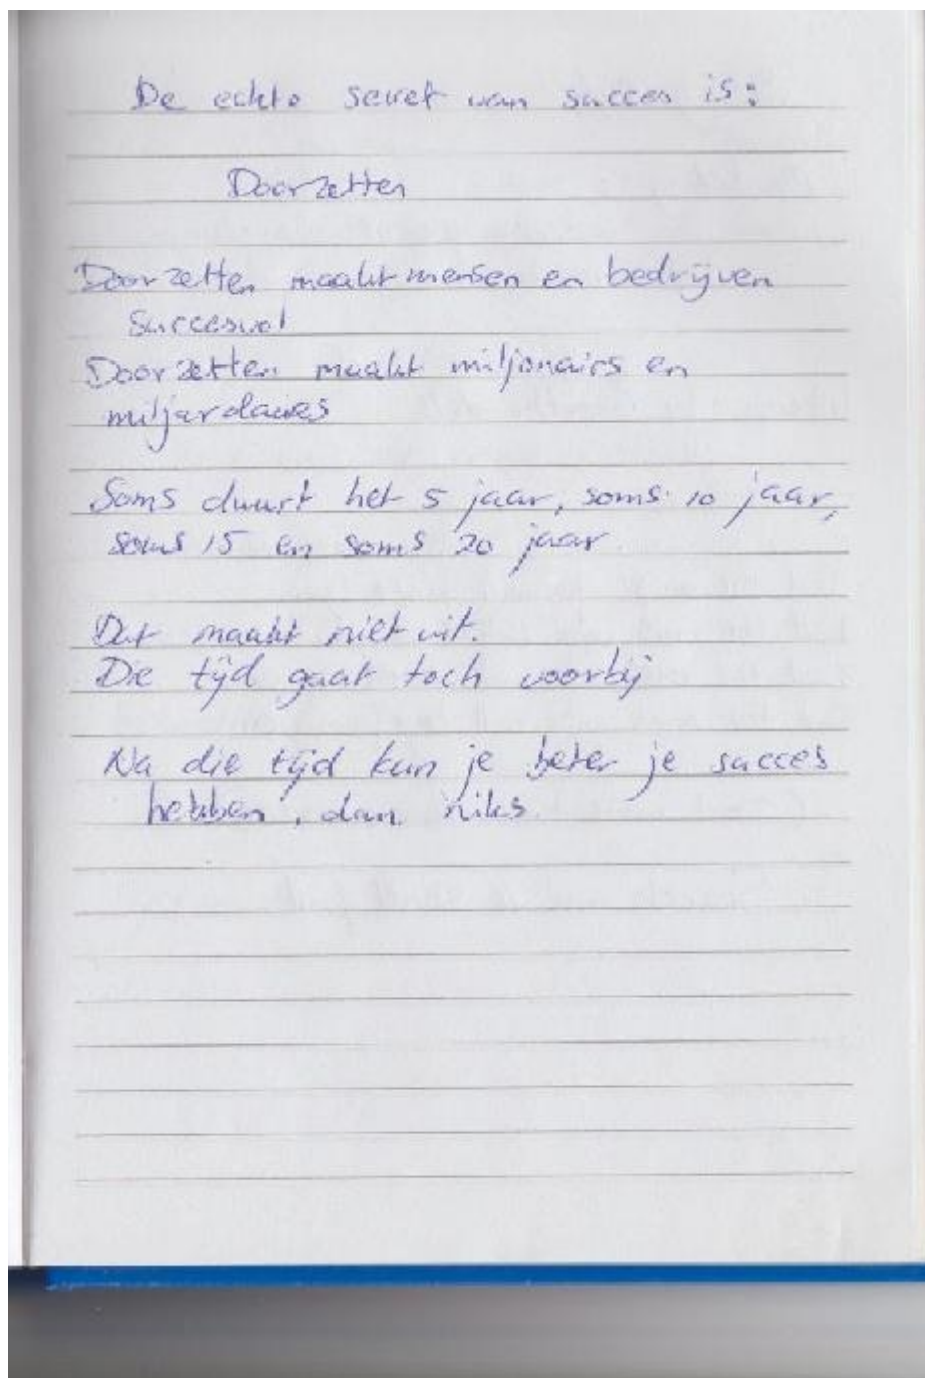 De echte secret van succes is:
Doorzetten
Doorzetten maakt mensen en bedrijven
succesvol
Doorzetten maakt miljonairs en
miljardaires
Soms duurt het 5 jaar, soms 10 jaar,
soms 15 en soms 20 jaar.
Dat maakt niet uit.
Die tijd gaat toch voorbij
Na die tijd kun je beter je succes
hebben, dan niks.